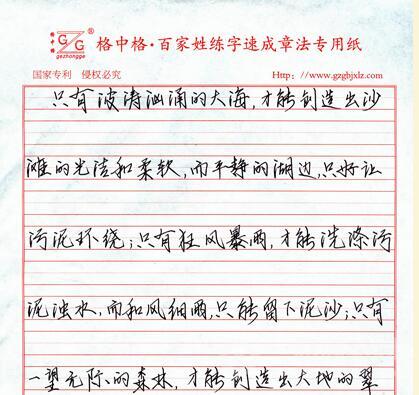 格中格·百家姓练字速成章法专用纸
GZG
gezhongge
国家专利 侵权必究
Http：//www.gzgbjxlz.com
只有波涛汹涌的大海,才能创造出沙
滩的光洁和柔软,而平静的湖边,只好让
污泥环绕;只有狂风暴雨,才能洗涤污
泥浊水,而和风细雨,只能留下泥沙;只有
一望无际的森林,才能创造出大地的翠